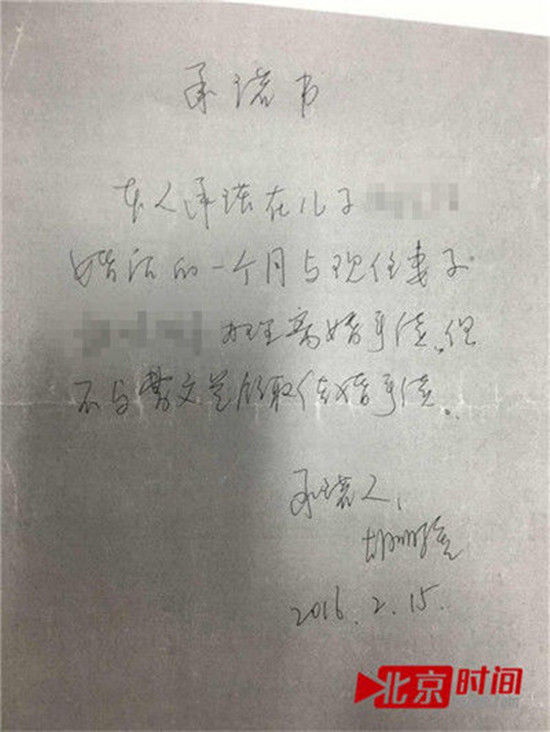 承诺书
本人承诺在儿子
婚后的一个月与现任妻子
办理离婚手续。但
不与曹文兰领取结婚手续。
承诺人、
2016.2.15.
北京时间